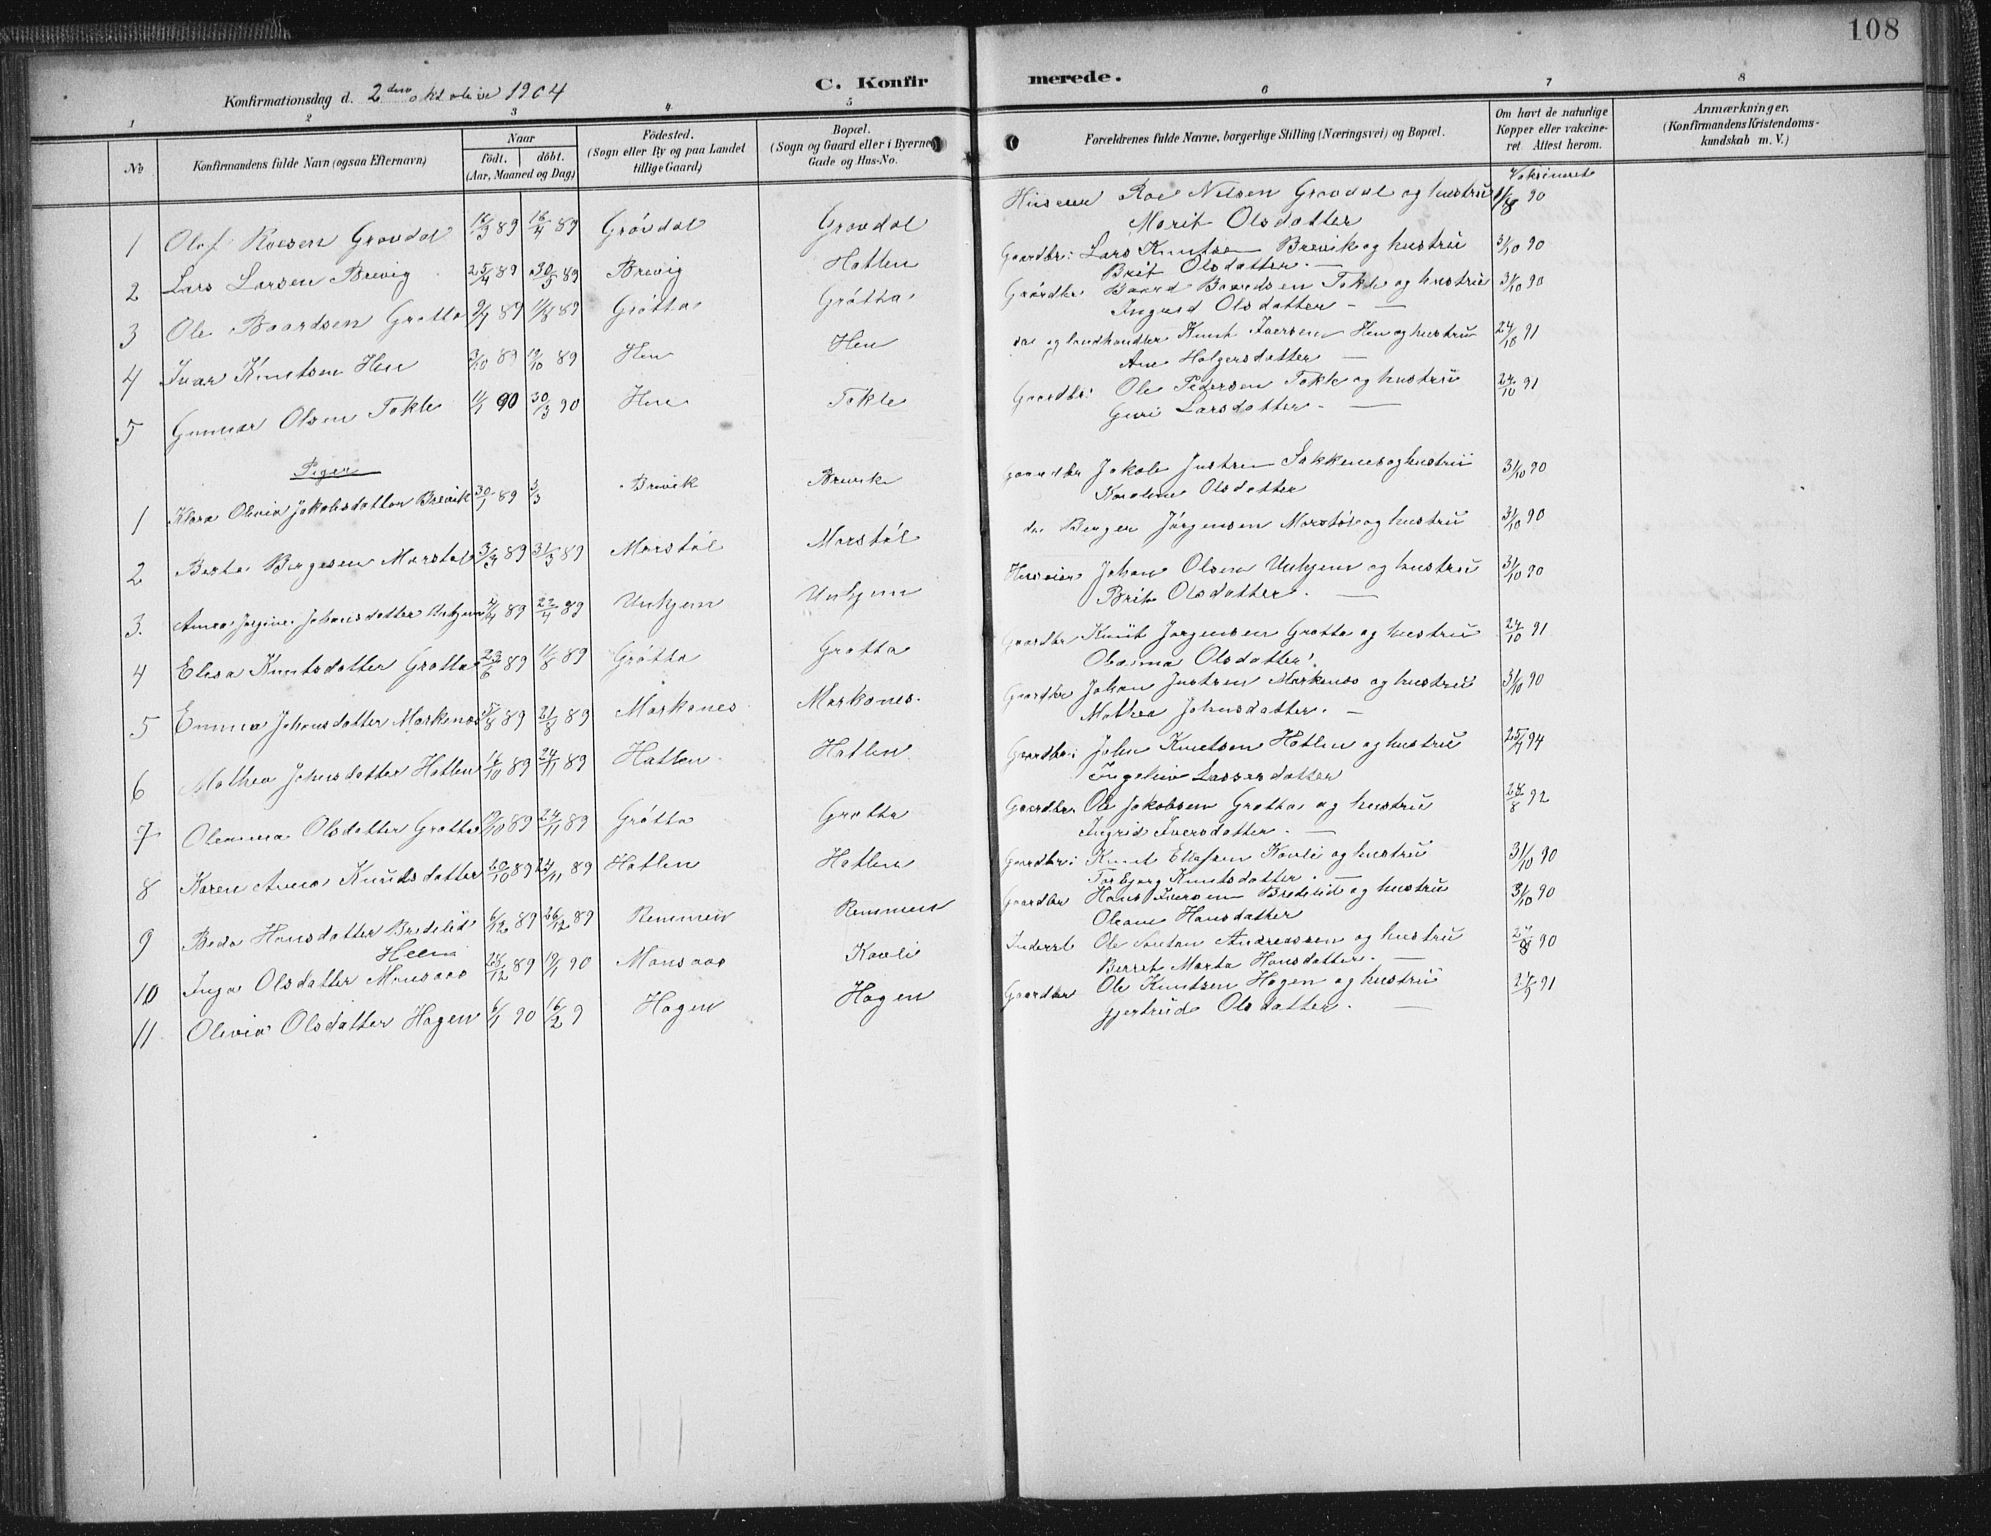 108
Konfirmationsdag d. 2den oktober 1904
C. Konfirmerede.
1 2 3 4 5 6 7 8
No
Konfirmandens fulde Navn (ogsaa Efternavn)
Naar
født. døbt.
(Aar, Maaned og Dag)
Fødested.
(Sogn eller By og paa Landet
tillige Gaard)
Bopæl.
(Sogn og Gaard eller i Byerne
Gade og Hus-No.
Forældrenes fulde Navne, borgerlige Stilling (Næringsvei) og Bopæl.
Om havt de naturlige
Kopper eller vakcine-
ret. Attest herom.
Anmærkninger.
(Konfirmandens Kristendoms-
kundskab m. V.)
Vaksineret
1 Olaf Roesen Grovdal 89 16/4 89 Grövdal Grovdal Roe Nilsen Grovdal og hustru 90
Marit Olsdatter
2 Lars Larsen Brevig 25/4 89 30/5 89 Brevig Hatlen Gaardbr: Lars Knutsen Brevik og hustru 31/10 90
Brit Olsdatter
3 Ole Baardsen Grotta 89 11/8 89 Grötta Grötta Gaardbr Baard Baardsen Tokle og hustru 31/10 90
Ingrid Olsdatter
4 Ivar Knutsen Hen 89 89 Hen Hen do og landhandler Knut Iversen Hen og hustru 24/10 91
Ane Holgersdatter
5 Gunnar Olsen Tokle 90 30/3 90 Hen Tokle Gaardbr: Ole Pedersen Tokle og hustru 24/10 91
Guri Larsdatter
Piger
1 Klara Olivia Jakobsdatter Brevik 30/1 89 3/3 Brevik Brevik gaardbr Jakob Justsen Sakkenes og hustru 31/10 90
Karoline Olsdatter
2 Berta Bergesen Morstöl 3/3 89 31/3 89 Morstöl Morstöl do Berger Jörgensen Morstöl og hustru 31/10 90
3. Anna Johansdatter Unhjem 89 22/4 89 Unhjem Unhjem Johan Olsen Unhjem og hustru 31/10 90
Brit Olsdatter
4 Elesa Knutsdatter Grotta 23/6 89 11/8 89 Grötta Grotta Gaardbr Knut Jorgensen Grotta og hustru 24/10 91
Olsdatter
5 Emma Johansdatter Morkenes 5/8 89 89 Morkenes Morkenes Gaardbr Johan Justsen Morkenes og hustru 31/10 90
Mathea Johnsdatter
6 Mathea Johnsdatter Hatlen 89 24/11 89 Hatlen Hatlen Gaardbr: John Knutsen Hatlen og hustru 94
Lassesdatter
7 Oleanna Olsdatter Grotta 89 24/11 89 Grötta Grotta Gaardbr: Ole Jakobsen Grotta og hustru 92
Ingrid Iversdatter
8 Karen Anna Knutsdatter 89 24/11 89 Hatlen Hatlen Gaardbr: Knut Ellefsen Kavli og hustru 31/10 90
Torbjorg Knutsdatter
9 Beda Hansdatter Bredelid 6/12 89 26/12 89 Remmen Remmen Gaardbr Hans Iversen Bredelid og hustru 31/10 90
Oleane Hansdatter
Helen
10 Inga Olsdatter Monsaas 28/12 89 19/1 90 Monsaas Kavli Inderst Ole Andreassen og hustru 90
Berret Marta Hansdatter
11 Olivia Olsdatter Hagen 6/1 90 16/2 9 Hagen Hagen Gaardbr Ole Knutsen Hagen og hustru 91
Gjertrude Olsdatter